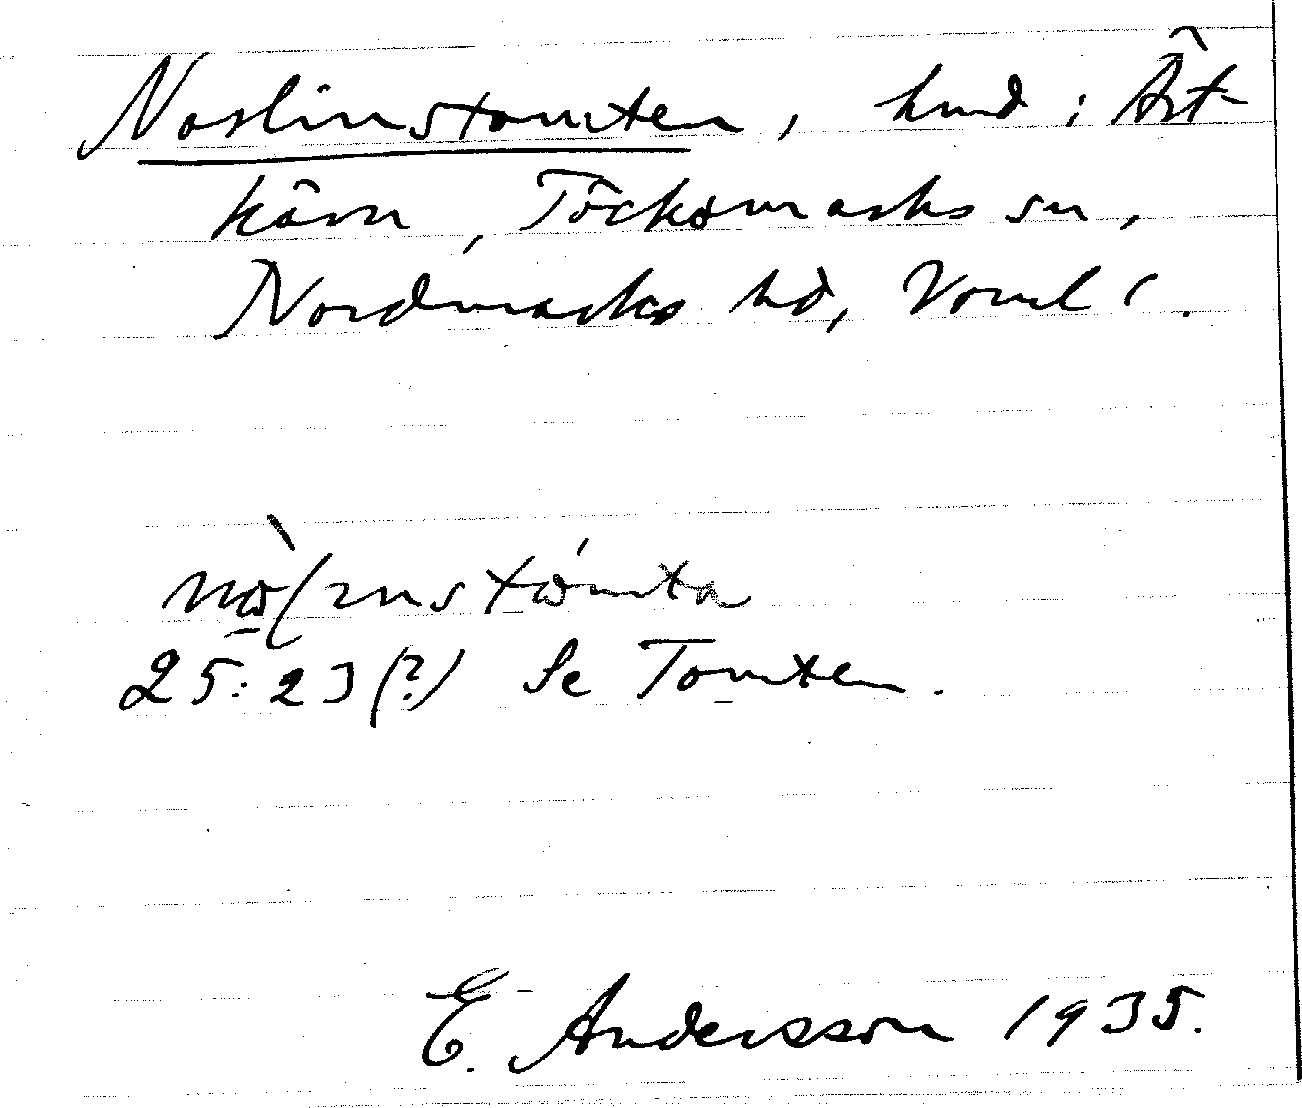 Noslinstomten, hmd i Årt-
kärn, Töcksmarks sn,
Nordmarks hd, Vrml.
25:23(?) Se Tomten.
E. Andersson 1935.